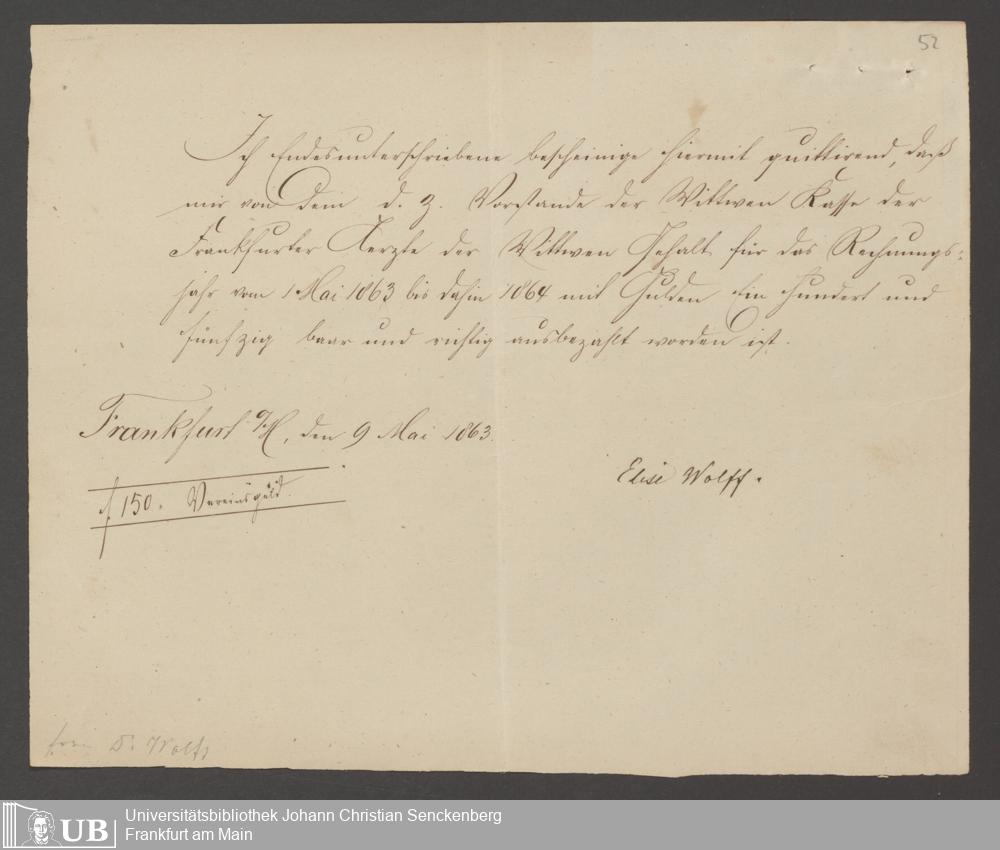 52
Ich Endesunterschriebene bescheinige hiermit quittirend, daß
mir von dem d. z. Vorstande der Wittwen Kasse der
Frankfurter Aerzte der Wittwen Gehalt für das Rechnungs-
jahr vom 1 Mai 1863 bis dahin 1864 mit Gulden Ein Hundert und
fünfzig baar und richtig ausbezahlt worden ist.
Frankfurt a/M, den 9 Mai 1863.
Elise Wolff.
f 150. Vereinsgeld.
Frau Dr Wolff
UB
Universitätsbibliothek Johann Christian Senckenberg
Frankfurt am Main